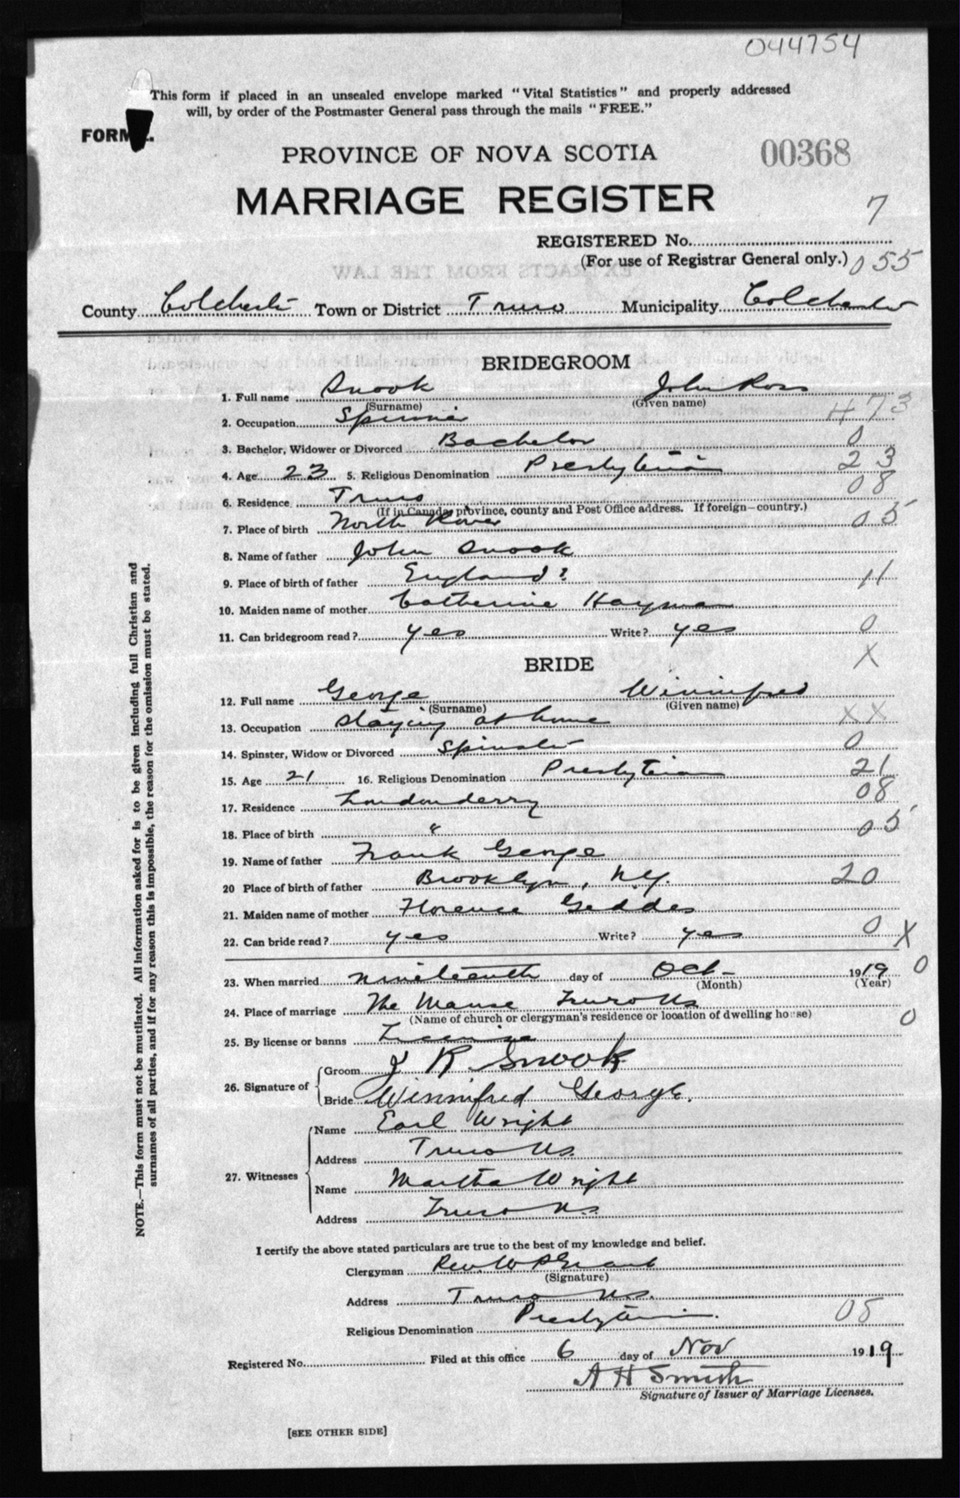 044754
This form if placed in an unsealed envelope marked "Vital Statistics" and properly addressed
will, by order of the Postmaster General pass through the mails "FREE."
FORM
PROVINCE OF NOVA SCOTIA 00368
MARRIAGE REGISTER
7
REGISTERED No.
(For use of Registrar General only.) 055
County Colchester Town or District Truro Municipality Colchester
BRIDEGROOM
1. Full name Snook John Ross
(Surname) (Given name)
2. Occupation 473
3. Bachelor, Widower or Divorced Bachelor 0
4. Age 23 5. Religious Denomination Presbyterian 23
6. Residence Truro 08
(If in Canada, province, county and Post Office address. If foreign—country.)
7. Place of birth North River 05
8. Name of father John Snook
9. Place of birth of father England? 11
10. Maiden name of mother Catherine Hayman
11. Can bridegroom read? yes Write? yes 0
BRIDE X
12. Full name George Winnifred
(Surname) (Given name)
13. Occupation staying at home XX
14. Spinster, Widow or Divorced Spinster 0
15. Age 21 16. Religious Denomination Presbyterian 21
17. Residence Londonderry 08
18. Place of birth " 05
19. Name of father Frank George
20 Place of birth of father Brooklyn, N.Y. 20
21. Maiden name of mother Florence Geddes
22. Can bride read? yes Write? yes 0 X
23. When married nineteenth day of Oct- 1919 0
(Month) (Year)
24. Place of marriage The Manse Truro NS
(Name of church or clergyman's residence or location of dwelling house) 0
25. By license or banns License
26. Signature of Groom J R Snook
Bride Winnifred George.
27. Witnesses
Name Earl Wright
Address Truro NS
Name Martha Wright
Address Truro N.S.
I certify the above stated particulars are true to the best of my knowledge and belief.
Clergyman Rev. W P Grant
(Signature)
Address Truro N.S.
Religious Denomination Presbyterian. 08
Registered No. Filed at this office 6 day of Nov 1919
A H Smith
Signature of Issuer of Marriage Licenses.
[SEE OTHER SIDE]
NOTE.—This form must not be mutilated. All information asked for is to be given including full Christian and
surnames of all parties, and if for any reason this is impossible, the reason for the omission must be stated.